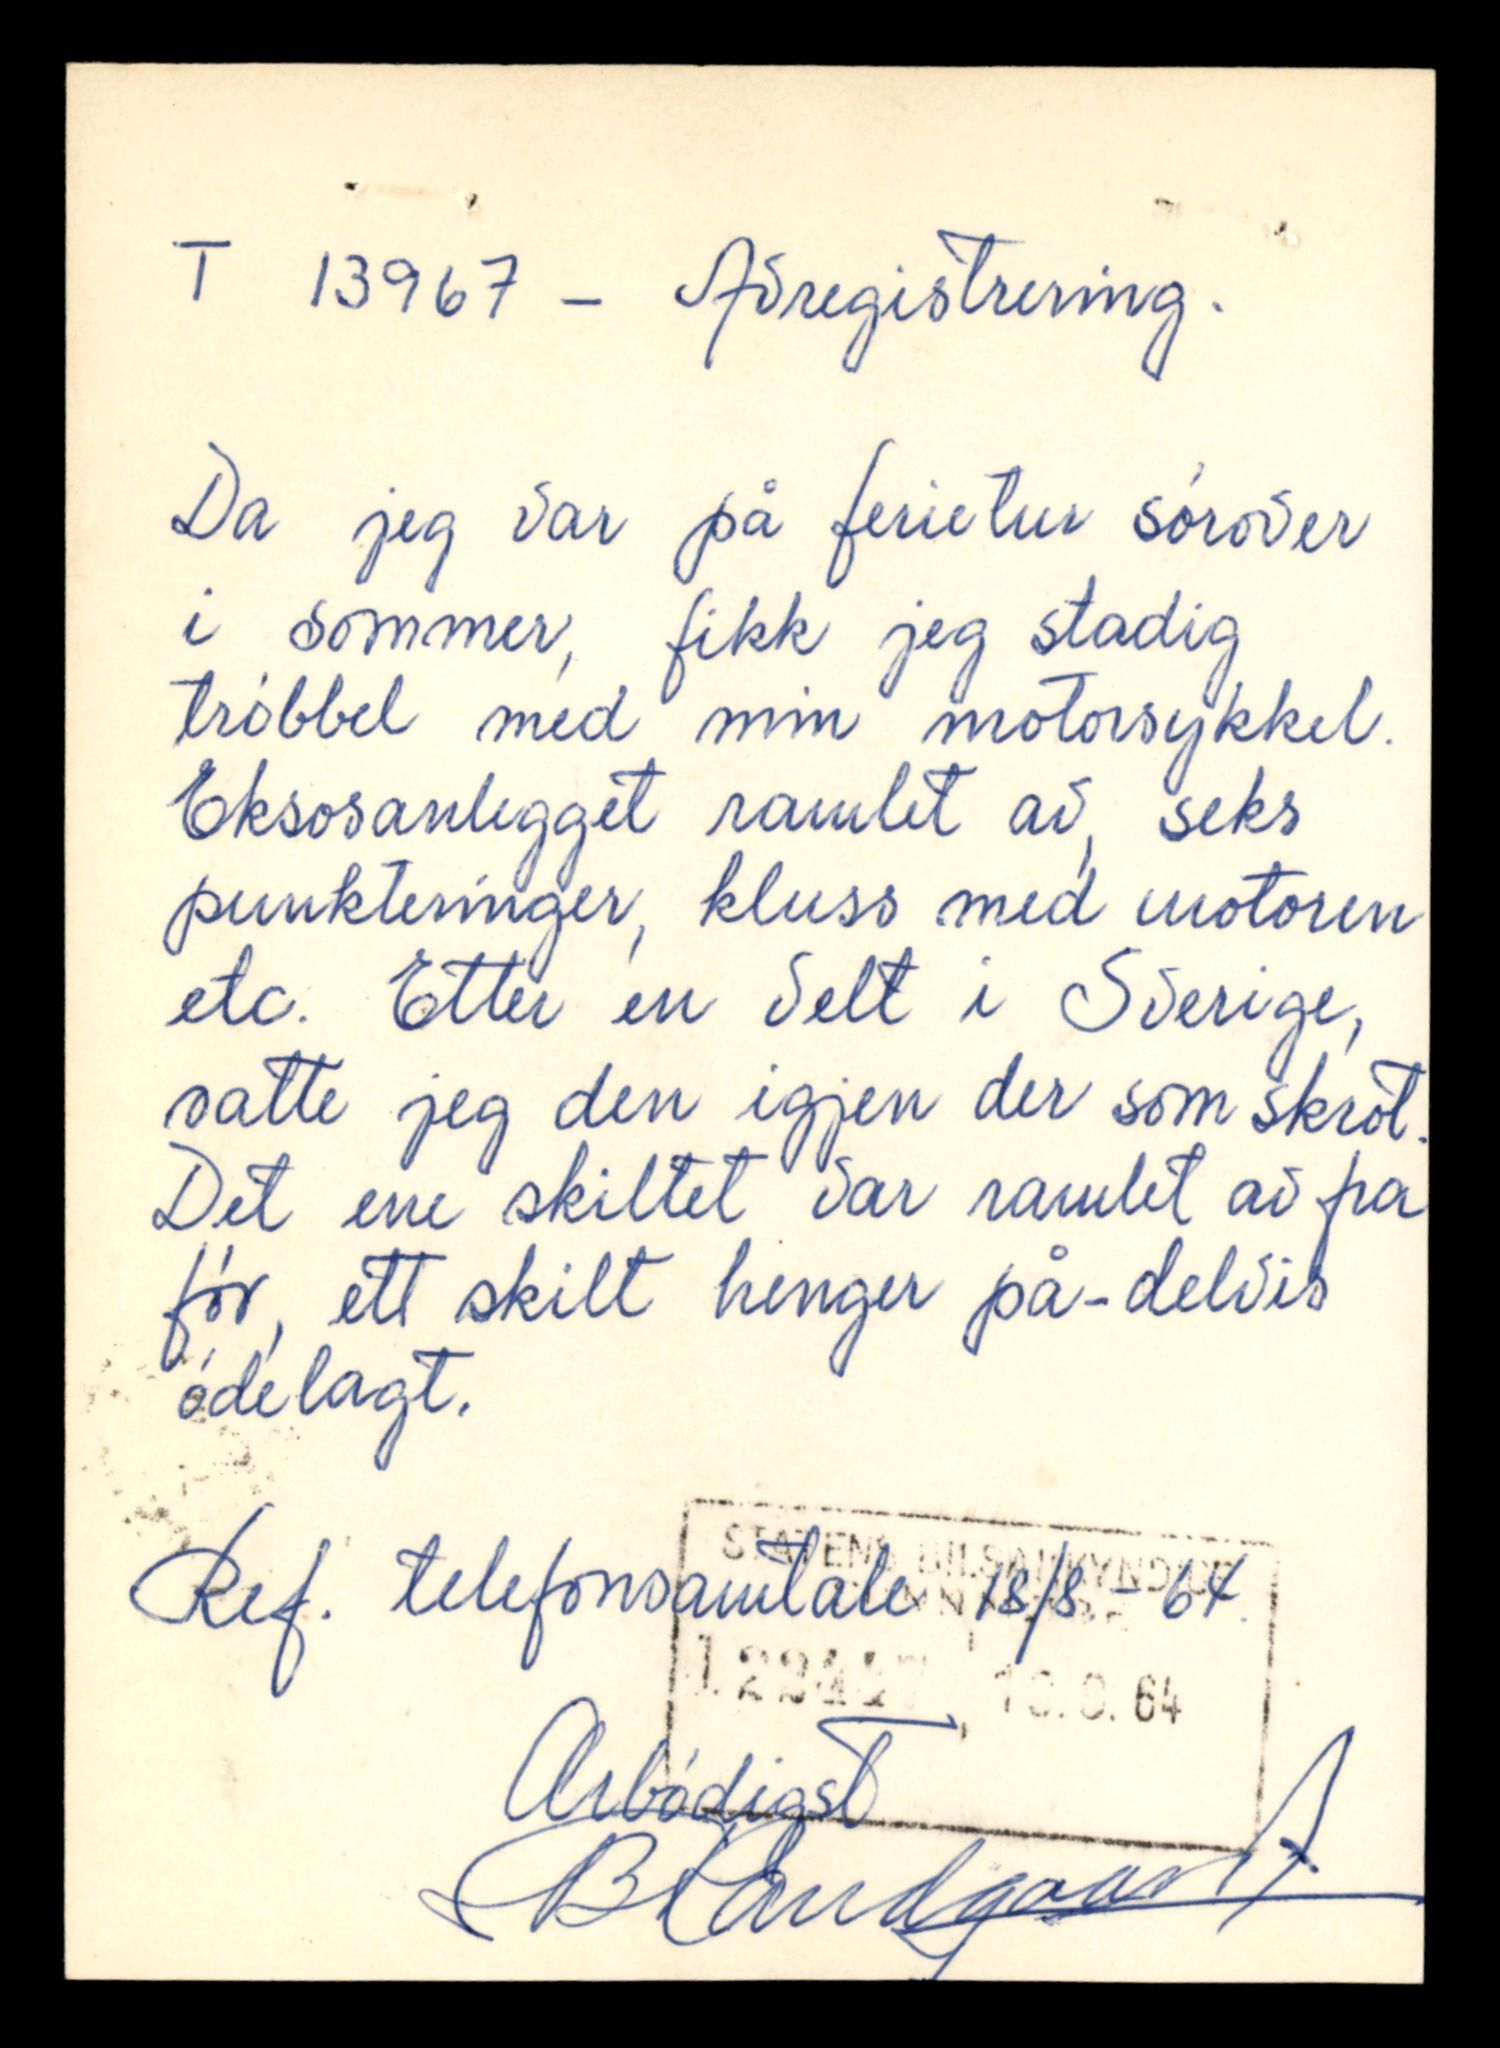 T 13967 - Avregistrering.
Da jeg var på ferietur sórover
i sommer, fikk jeg stadig
tróbbel med min motorsykkel.
Eksosanlegget ramlet av, seks
punkteringer, kluss med motoren
etc. Etter en velt i Sverige,
satte jeg den igjen der som skrot.
Det ene skiltet var ramlet av fra
fór, ett skilt henger på - delvis
ódelagt.
Ref. telefonsamtale 18/8. - 64.
STATENS BILSAKKYNDIGE
64
Arbódigst